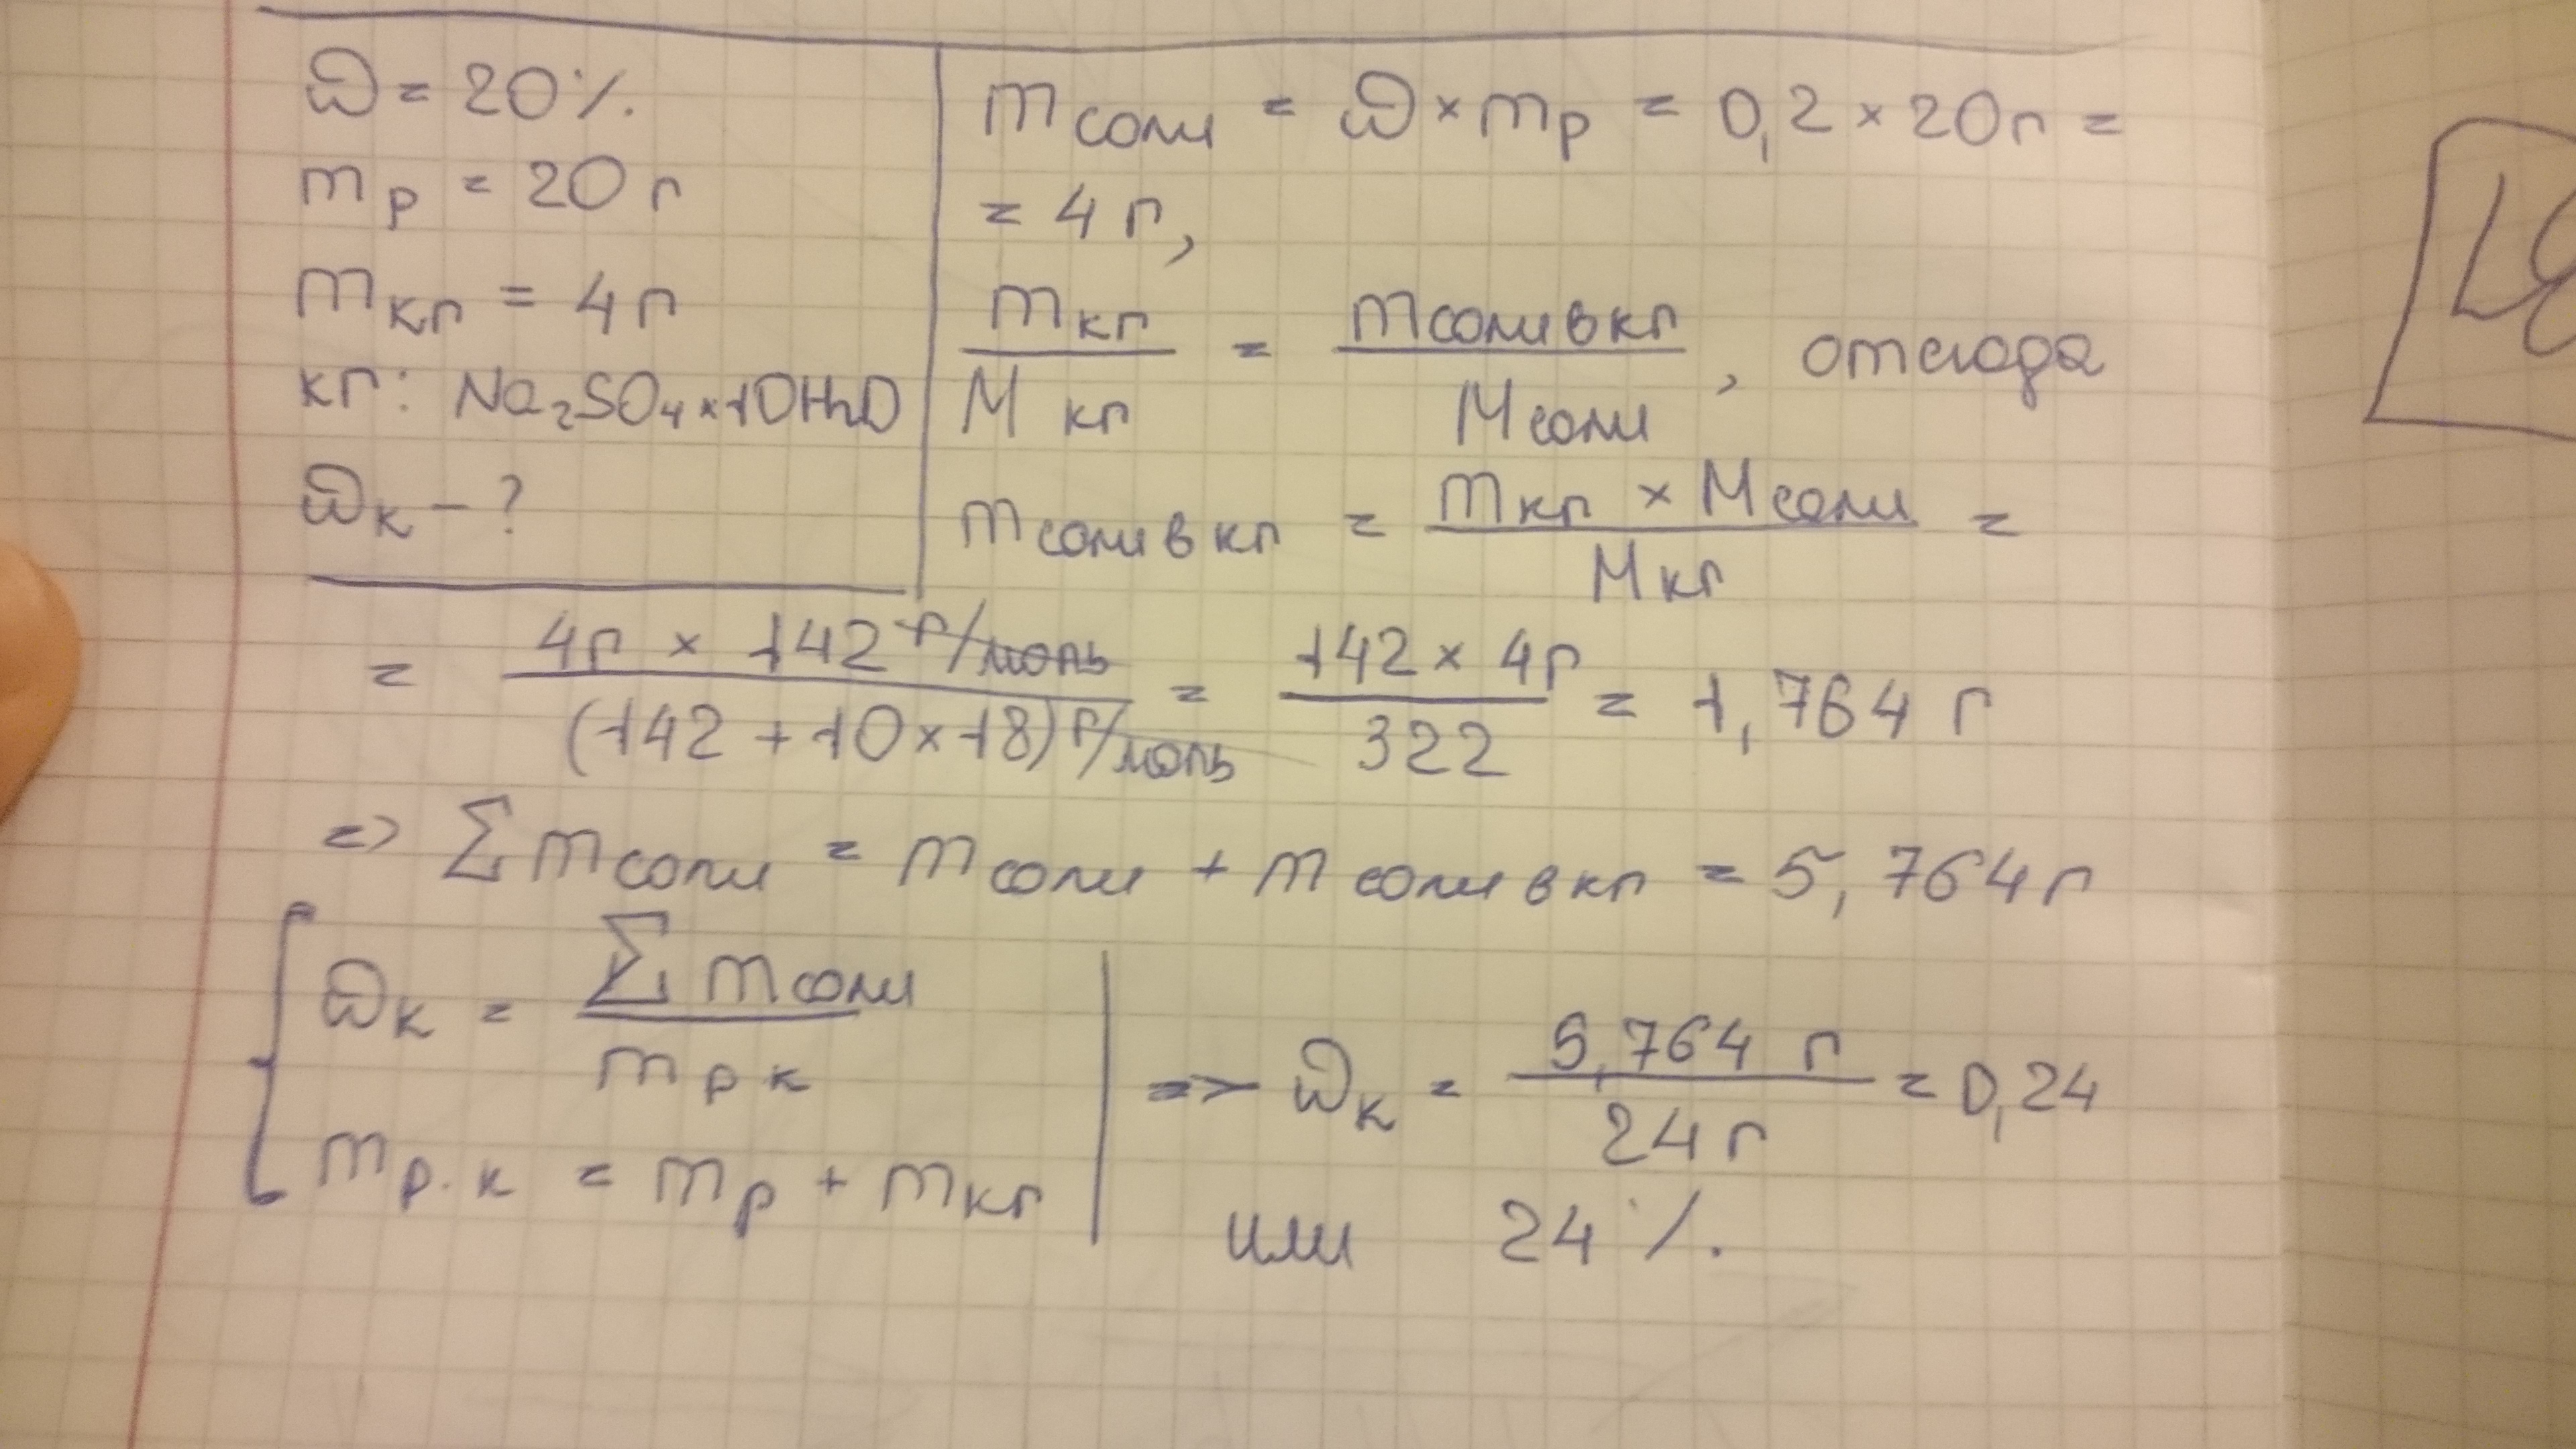 ω = 20%
mр = 20 г
mкг = 4 г
кг: Na₂SO₄ × 10H₂O
ωк – ?
mсоли = ω × mр = 0,2 × 20 г =
= 4 г,
mкг / Mкг = mсоли в кг / Mсоли, отсюда
mсоли в кг = mкг × Mсоли / Mкг =
= 4 г × 142 г/моль / (142 + 10 × 18) г/моль = 142 × 4 г / 322 = 1,764 г
=> Σ mсоли = mсоли + mсоли в кг = 5,764 г
ωк = Σ mсоли / mр к
mр.к = mр + mкг
=> ωк = 5,764 г / 24 г = 0,24
или 24 %.